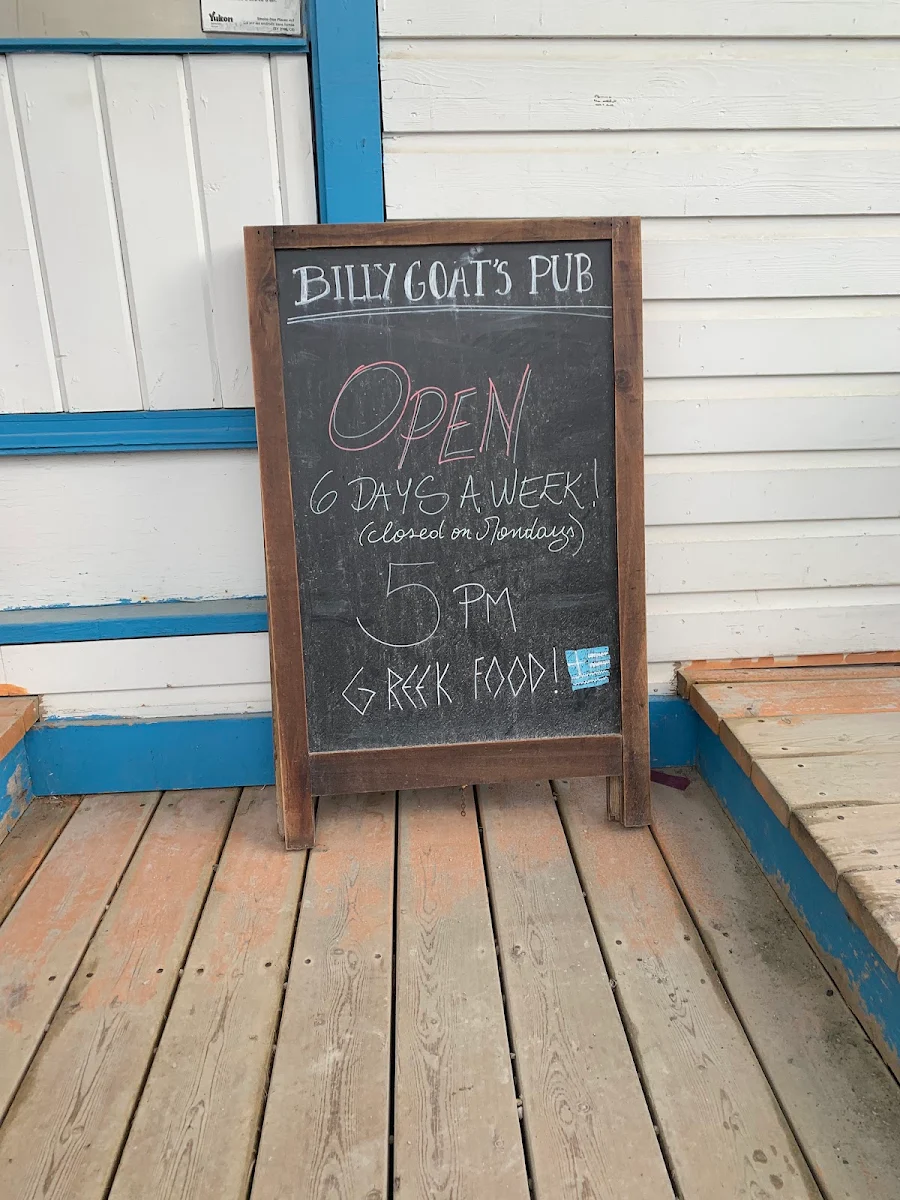 Yukon
BILLY GOAT'S PUB
OPEN
6 DAYS A WEEK!
(closed on Mondays)
5 PM
GREEK FOOD!